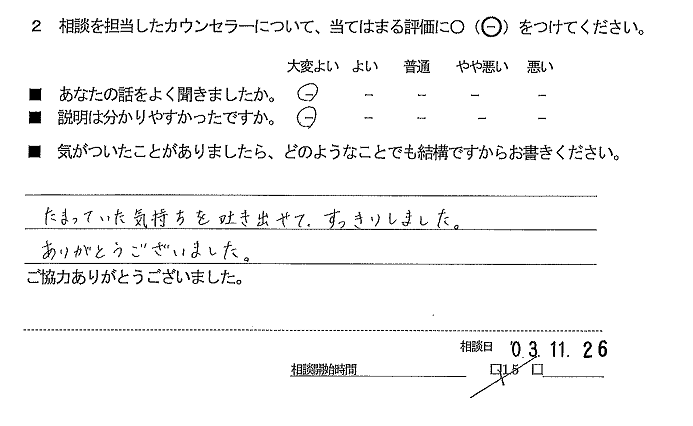 2 相談を担当したカウンセラーについて、当てはまる評価に○（⊖）をつけてください。
大変よい よい 普通 やや悪い 悪い
■ あなたの話をよく聞きましたか。 － － － － －
■ 説明は分かりやすかったですか。 － － － － －
■ 気がついたことがありましたら、どのようなことでも結構ですからお書きください。
たまっていた気持ちを吐き出せて、すっきりしました。
ありがとうございました。
ご協力ありがとうございました。
相談日 '03.11.26
相談開始時間 □15 □